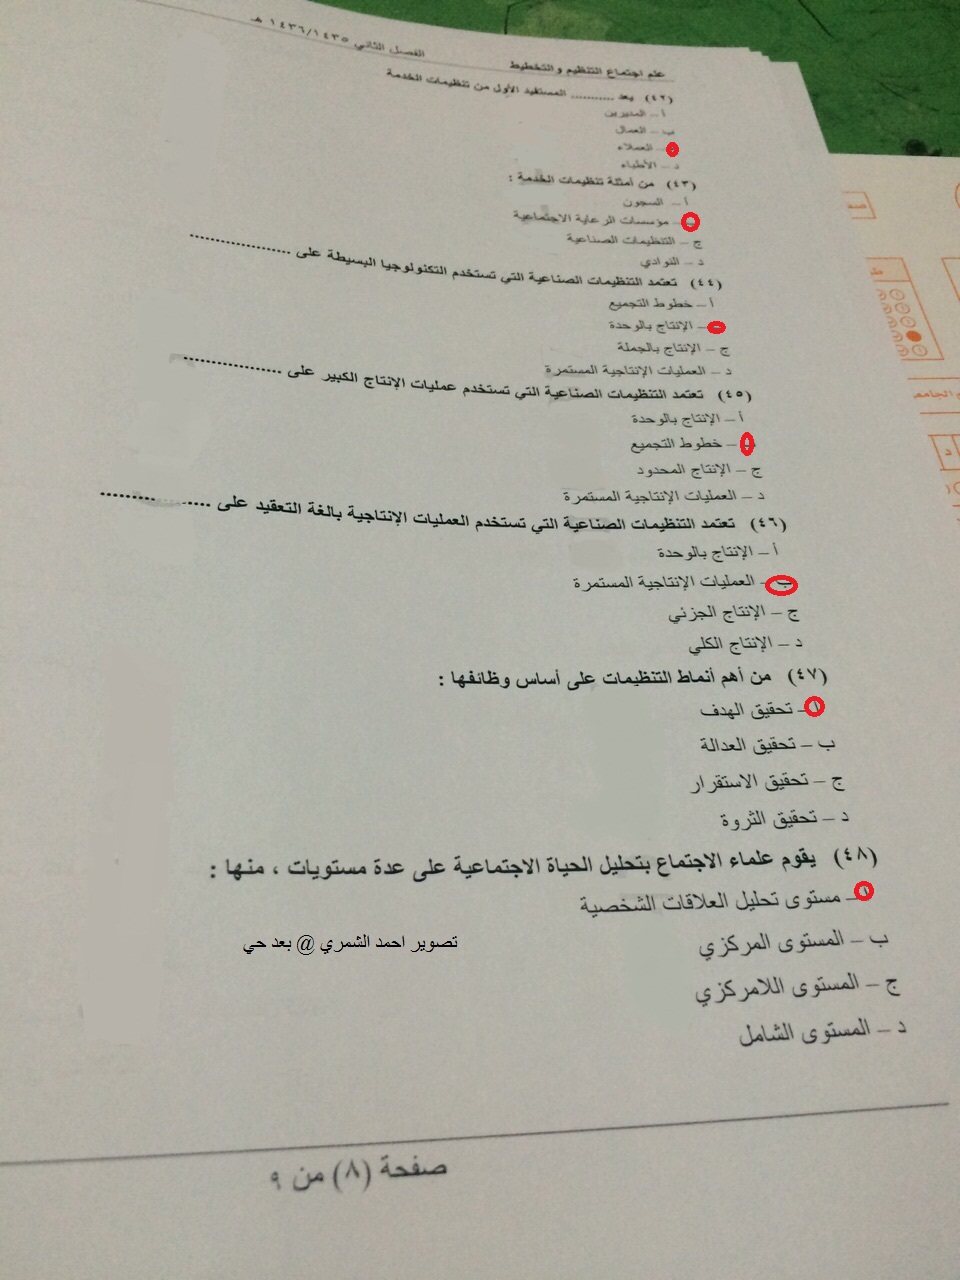 علم اجتماع التنظيم والتخطيط
الفصل الثاني ١٤٣٦/١٤٣٥ هـ
(٤٢) يعد ........... المستفيد الأول من تنظيمات الخدمة
أ – المديرين
ب – العمال
– العملاء
د – الأطباء
(٤٣) من أمثلة تنظيمات الخدمة :
أ – السجون
– مؤسسات الرعاية الاجتماعية
ج – التنظيمات الصناعية
د – النوادي
(٤٤) تعتمد التنظيمات الصناعية التي تستخدم التكنولوجيا البسيطة على ....................
أ – خطوط التجميع
– الإنتاج بالوحدة
ج – الإنتاج بالجملة
د – العمليات الإنتاجية المستمرة
(٤٥) تعتمد التنظيمات الصناعية التي تستخدم عمليات الإنتاج الكبير على ....................
أ – الإنتاج بالوحدة
ب – خطوط التجميع
ج – الإنتاج المحدود
د – العمليات الإنتاجية المستمرة
(٤٦) تعتمد التنظيمات الصناعية التي تستخدم العمليات الإنتاجية بالغة التعقيد على ....................
أ – الإنتاج بالوحدة
ب – العمليات الإنتاجية المستمرة
ج – الإنتاج الجزئي
د – الإنتاج الكلي
(٤٧) من أهم أنماط التنظيمات على أساس وظائفها :
أ – تحقيق الهدف
ب – تحقيق العدالة
ج – تحقيق الاستقرار
د – تحقيق الثروة
(٤٨) يقوم علماء الاجتماع بتحليل الحياة الاجتماعية على عدة مستويات ، منها :
أ – مستوى تحليل العلاقات الشخصية
ب – المستوى المركزي
ج – المستوى اللامركزي
د – المستوى الشامل
تصوير احمد الشمري @ بعد حي
صفحة (٨) من ٩